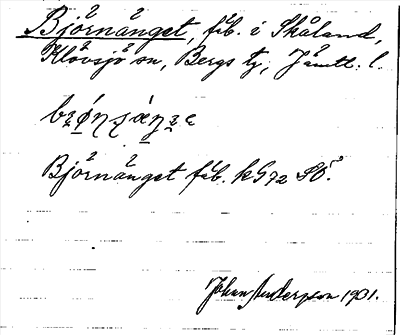 Björnänget, fäb. i Skåland,
Klövsjö sn, Bergs tg, Jämtl. l.
Björnänget fäb. kG72 SÖ.
Johan Anderzson 1901.